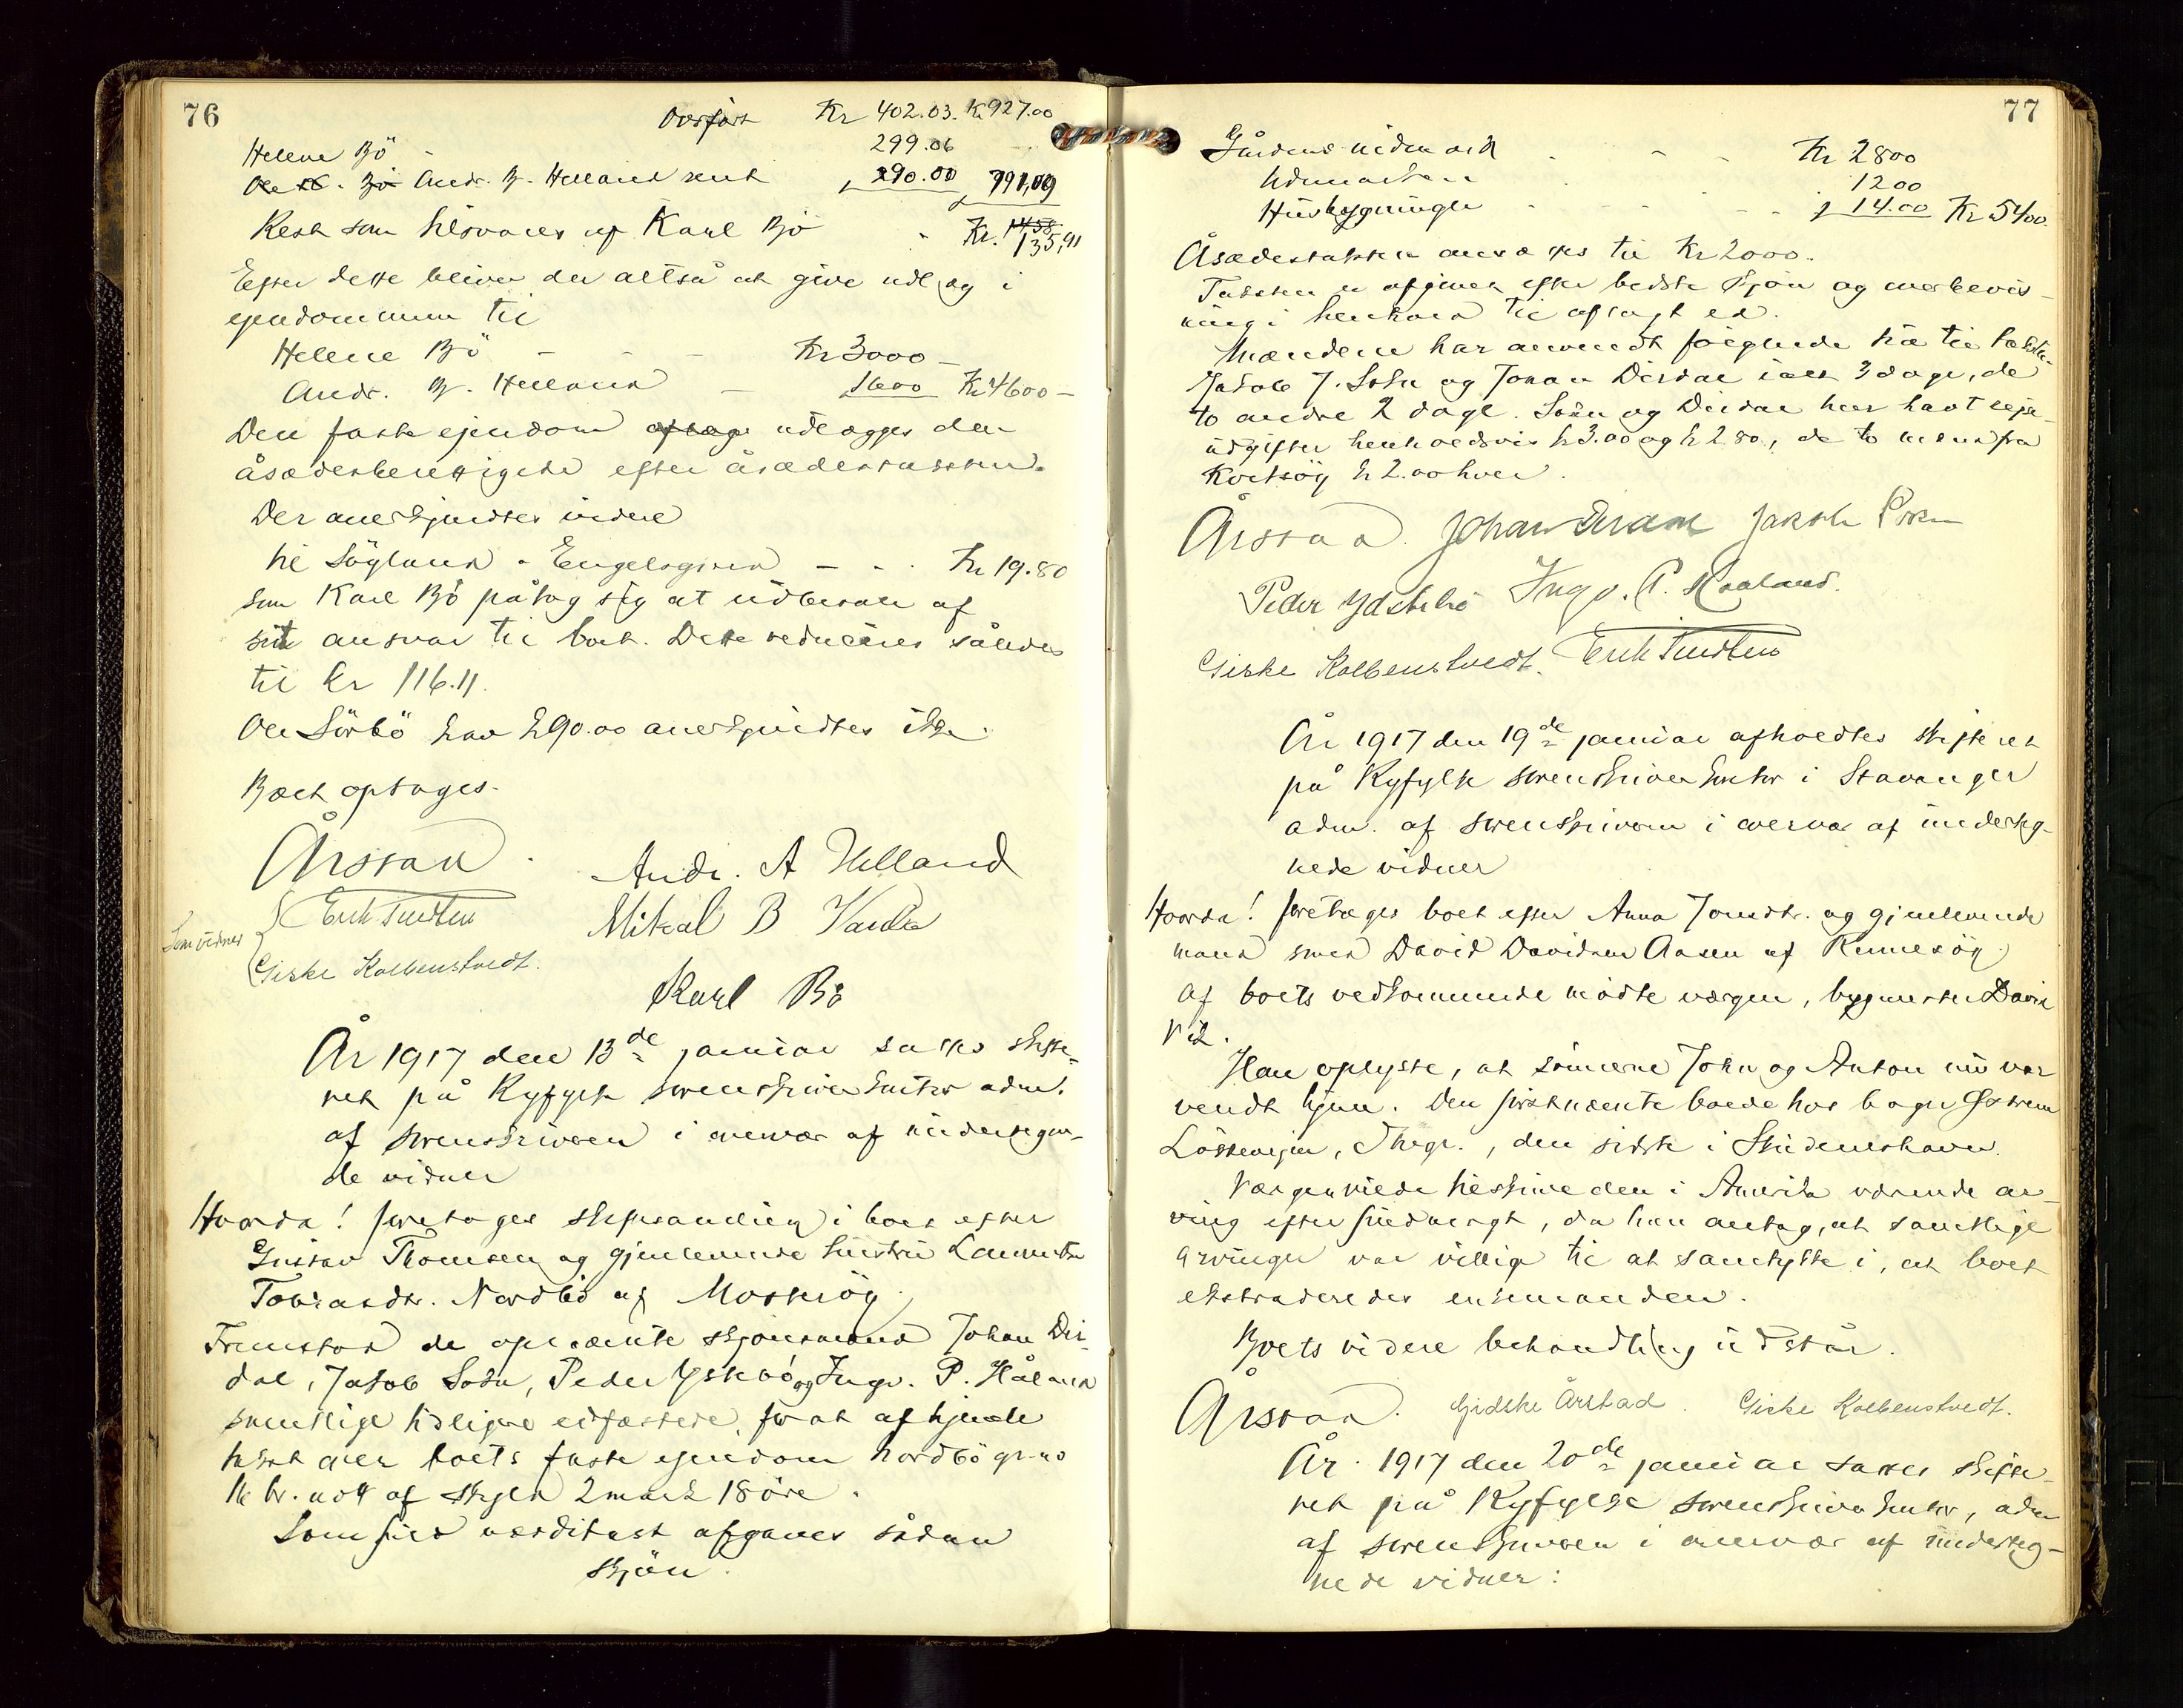 76
Overført Kr 402.03. Kr 927.00
Helene Bö - 299.06
Andr. B. Helland sent 290.00 791,09
Rest som tilsvares af Karl Bö Kr. 135,91
Efter dette bliver der altså at give udlæg i
ejendommen til
Helene Bö - - - Kr 3000 -
Andr. B. Helland - 1600 Kr 4600 -
Den faste ejendom udlægges den
åsædesberettigede efter åsædestaksten.
Der anerkjendtes videre
til Söyland - Engelsgjerd - - . Kr 19.80
som Karl Bö påtog sig at udbetale af
sit ansvar til boet. Dette reduceres således
til kr 116.11.
Ole Sörbö krav kr 90.00 anerkjendtes ikke.
Boet optages.
Årstad. Andr. A Helland
Som vidner Erik Tindten Mikal B Vaula
Giske Kolbenstvedt.
Karl Bö
År 1917 den 13de januar sattes skifte-
ret på Ryfylke sorenskriverkontor adm.
af sorenskriveren i overvær af undertegne-
de vidner
Hvorda! foretoges skiftesamling i boet efter
Gustav Thomsen og gjenlevende hustru Lauritse
Tobiasdtr. Nordbö af Mosterøy
Fremstod de opnævnte skjönsmænd Johan Dir-
dal, Jakob Sokn, Peder Ydstebö og Ingv. P. Håland
samtlige tidligere edfæstede, for at afhjemle
takst over boets faste ejendom Nordbö gr. no
16 br. no 4 af skyld 2 mark 18 öre.
Som fuld værditakst afgaves sådan
skjön.
77
Gårdens indmark - - - Kr 2800
Udmarken 1200
Husbygninger - - - - 14.00 Kr 5400.
Åsædestaksten ansættes til Kr 2000.
Taksten er afgivet efter bedste skjön og overbevis-
ning i henhold til aflagt ed.
Mændene har anvendt fölgende tid til taksten.
Jakob J. Sokn og Johan Dirdal ialt 3 dage, de
to andre 2 dage. Sokn og Dirdal har havt reise-
udgifter henholdsvis kr 3.00 og kr 2.80, de to mænd fra
kr 2.00 hver.
Årstad. Johan Dirdal Jakob Sokn
Peder Ydstebö Ingv. P. Haaland.
Giske Kolbenstvedt. Erik Tindten
År 1917 den 19de januar afholdtes skifteret
på Ryfylke sorenskriverkontor i Stavanger
adm. af sorenskriveren i overvær af underteg-
nede vidner
Hvorda! foretoges boet efter Anna Jonsdtr. og gjenlevende
mand smed David Davidsen Aasen af Rennesöy
Af boets vedkommende mödte værgen, bygmester David
Vik.
Han oplyste, at sönnerne John og Anton nu var
vendt hjem. Den förstnævnte boede hos bager Östrem
Lökkeveien, Stvgr., den sidste i Skudeneshavn.
Værgen vilde tilskrive den i Amerika værende ar-
ving efter fuldmagt, da han antog, at samtlige
arvinger var villige til at samtykke i, at boet
ekstraderedes enkemanden.
Boets videre behandling udstår.
Årstad. Gidske Årstad. Giske Kolbenstvedt.
År 1917 den 20de januar sattes skifte-
ret på Ryfylke sorenskriverkontor, adm
af sorenskriveren i overvær af underteg-
nede vidner: